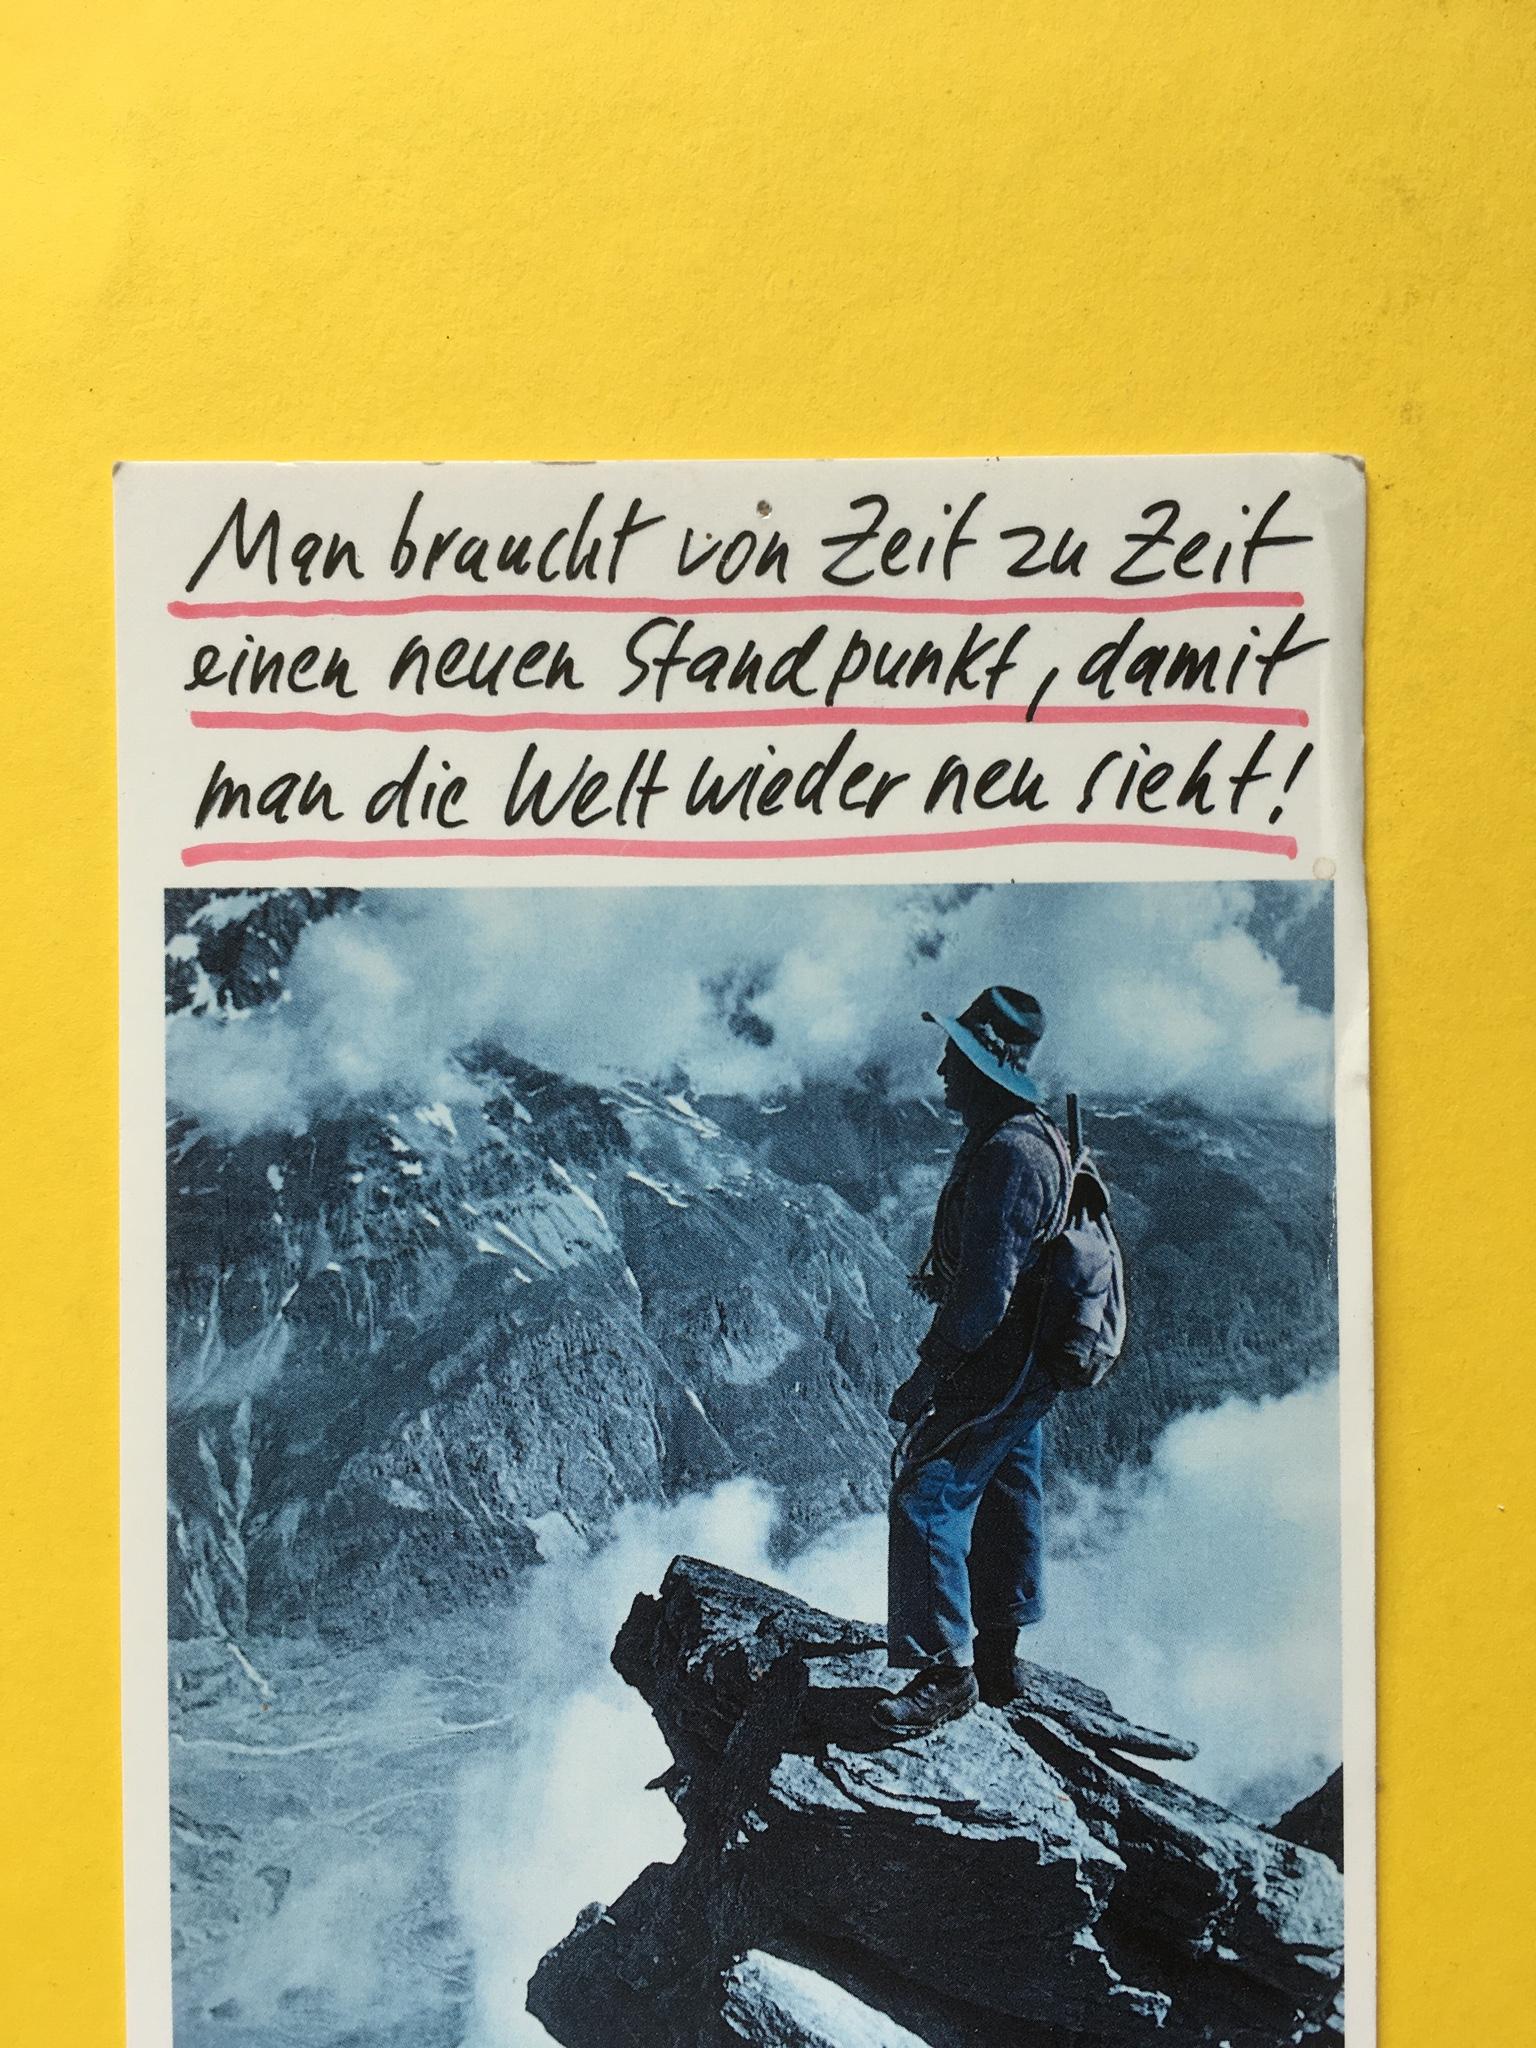 Man braucht von Zeit zu Zeit
einen neuen Standpunkt, damit
man die Welt wieder neu sieht!